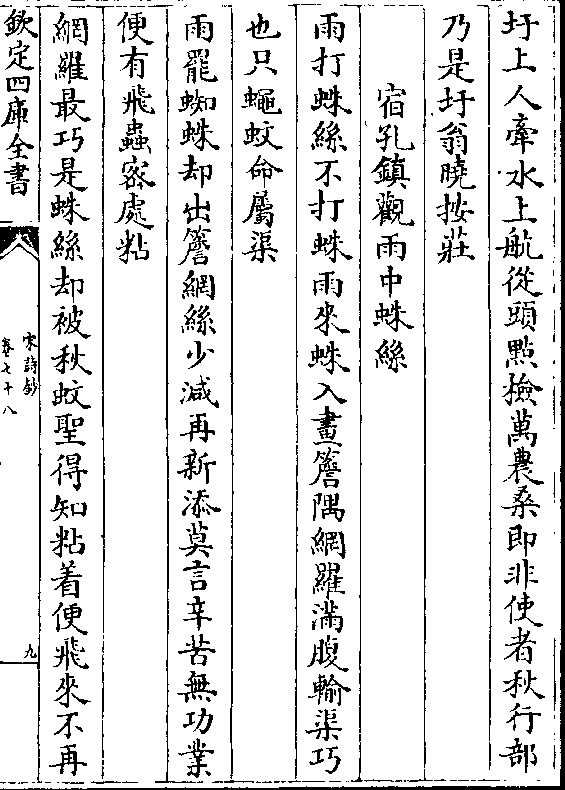 圩上人牽水上航從頭點撿萬農桑即非使者秋行部
乃是圩翁曉按莊
宿孔鎮觀雨中蛛絲
雨打蛛絲不打蛛雨來蛛入畫簷隅網羅滿腹輸渠巧
也只蠅蚊命屬渠
雨罷蜘蛛却出簷網絲少減再新添莫言辛苦無功業
便有飛蟲密處粘
網羅最巧是蛛絲却被秋蚊聖得知粘着便飛來不再
欽定四庫全書
宋詩鈔
卷七十八
九